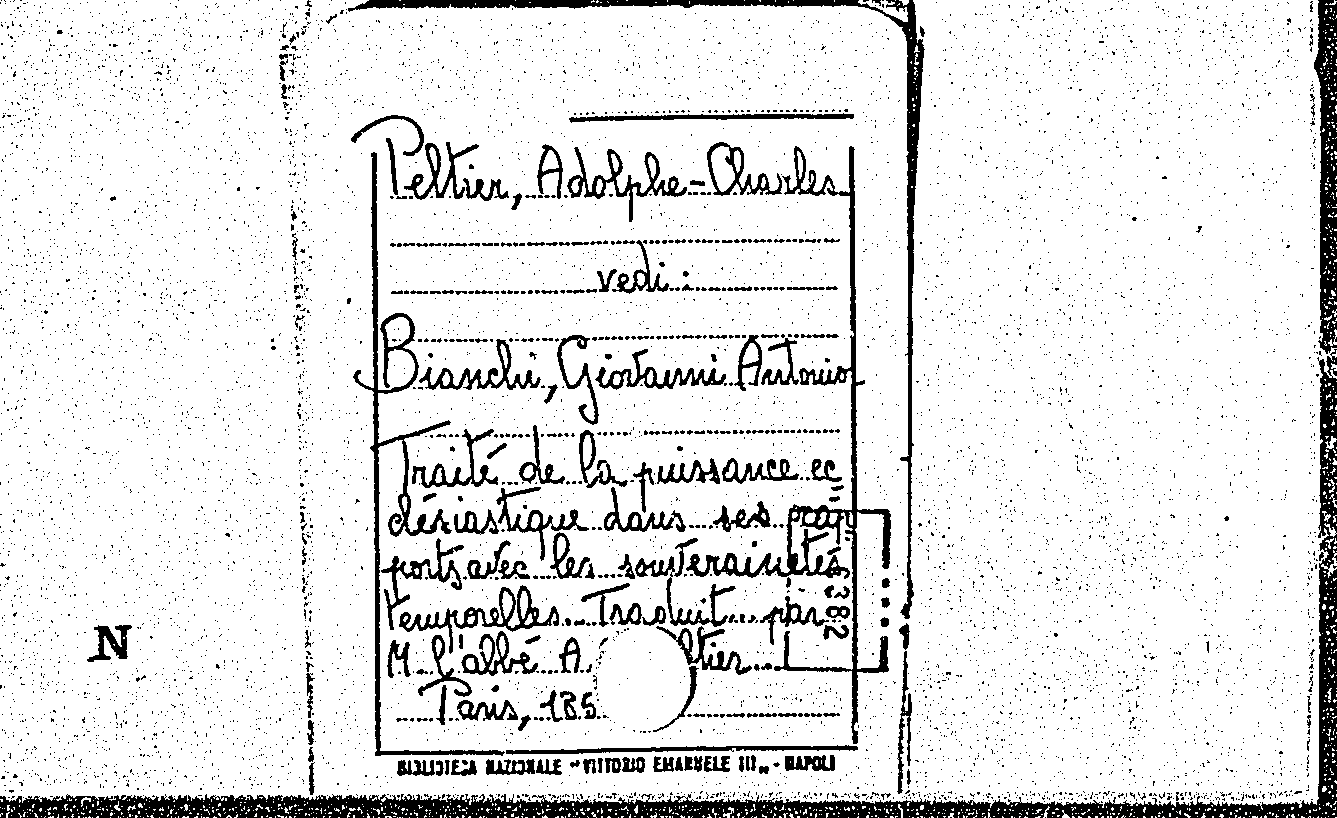 Peltier, Adolphe-Charles
vedi:
Bianchi, Giovanni Antonio
Traité de la puissance ec
clésiastique dans ses rap
ports avec les souverainetés
temporelles... Traduit... par
M. l'abbé A. ltier...
Paris, 185
N
BIBLIOTECA NAZIONALE "VITTORIO EMANUELE III" - NAPOLI